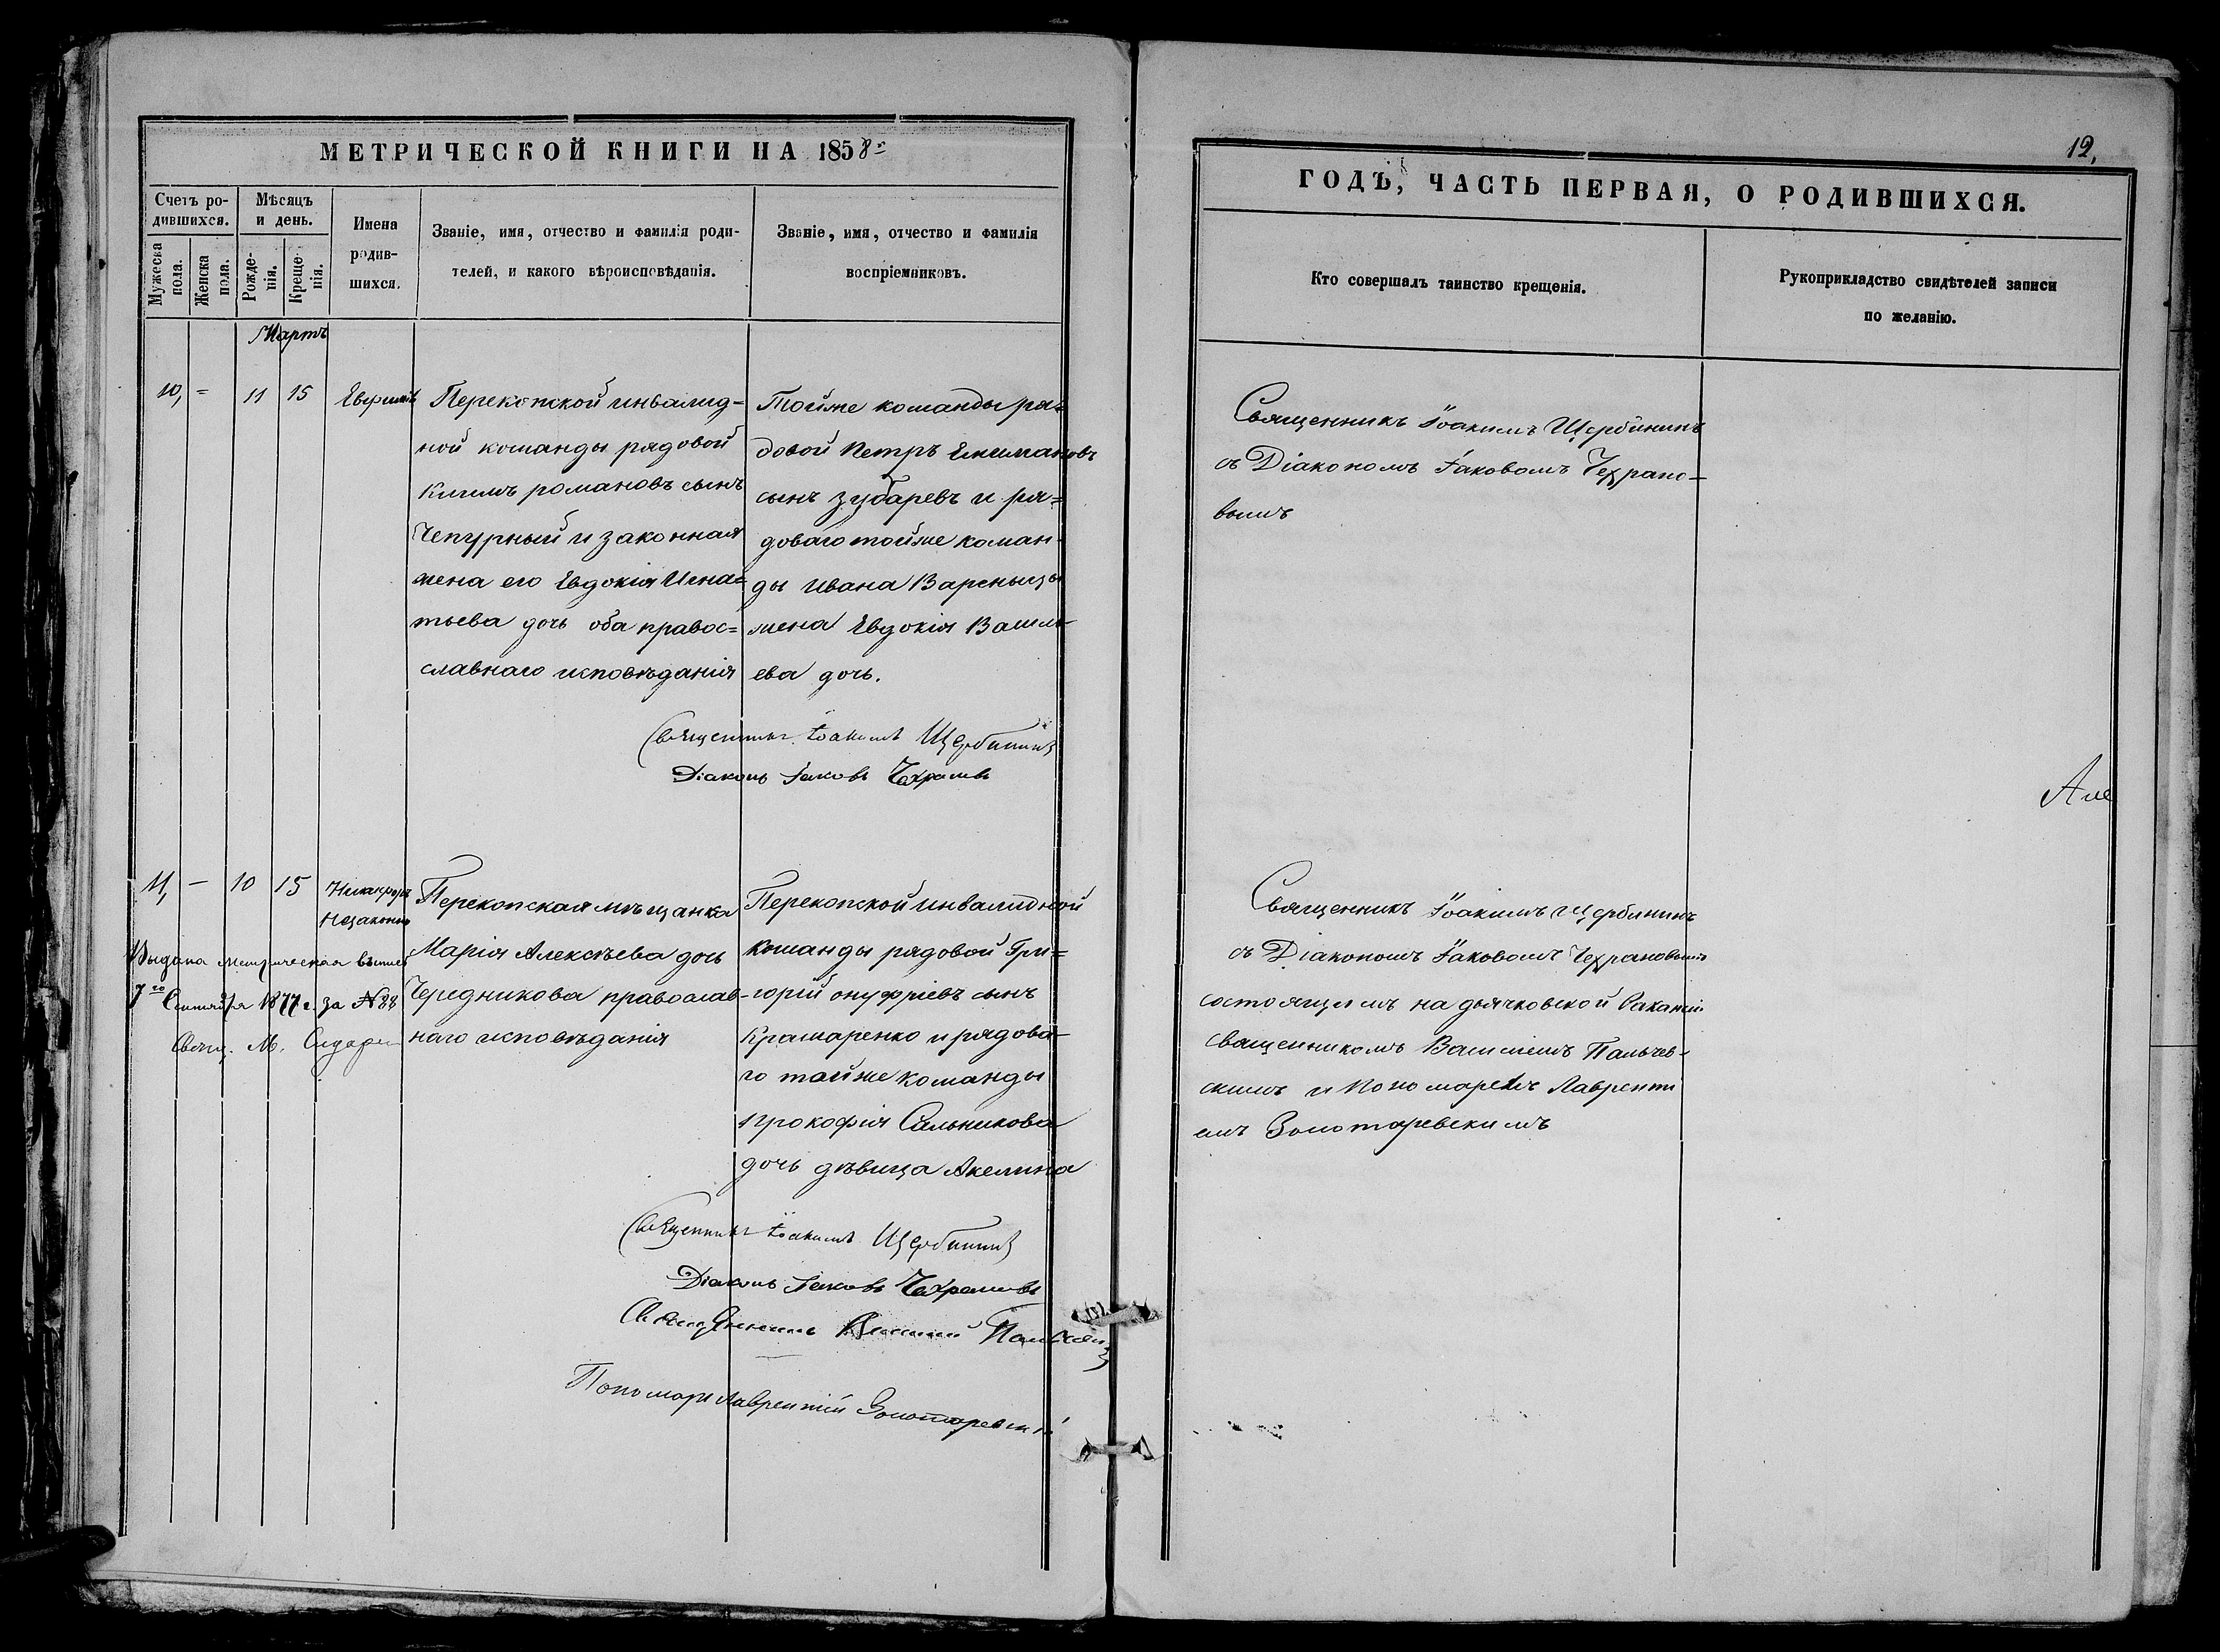 МЕТРИЧЕСКОЙ КНИГИ НА 1858
Счетъ ро-
дившихся.
Мужеска
пола.
Женска
пола.
Мѣсяцъ
и день.
Рожде-
нія.
Креще-
нія.
Имена
родив-
шихся.
Званіе, имя, отчество и фамилія роди-
телей, и какого вѣроисповѣданія.
Званіе, имя, отчество и фамилія
воспріемниковъ.
Мартъ
10, = 11 15
Перекопской инвалид-
ной команды рядовой
романовъ сынъ
Чепурный и законная
жена его Евдокія Игна=
тьева дочь оба правос=
славнаго исповѣданія
Тойже команды ря=
довой Петръ
сынъ зубаревъ и ря=
доваго тойже коман-
ды Ивана
жена Евдокія Василь-
ева дочь.
Священникъ Іоакимъ Щербининъ
Діаконъ Іаковъ
11, — 10 15
Никифоръ
Незаконно
Перекопская мѣщанка
Марія Алексѣева дочь
Чередникова православ-
наго исповѣданія
Перекопской инвалидной
команды рядовой Гри=
горій онуфріевъ сынъ
Крамаренко и рядова-
го тойже команды
прокофія Сальникова
дочь дѣвица Акелина
Выдана метрическая выпись
7го Сентября 1877 г. за № 88
Свящ. М.
Священникъ Іоакимъ Щербининъ
Діаконъ Іаковъ
Священникъ Василий
Пономарь Лаврентій Золотаревскій
12,
ГОДЪ, ЧАСТЬ ПЕРВАЯ, О РОДИВШИХСЯ.
Кто совершалъ таинство крещенія.
Рукоприкладство свидѣтелей записи
по желанію.
Священникъ Іоакимъ Щербининъ
съ Діакономъ Іаковомъ Чехрано-
вымъ
Але
Священникъ Іоакимъ Щербининъ
съ Діакономъ Іаковомъ Чехрановымъ
состоящимъ на дьячковской Ваканціи
священникомъ Василіемъ Пальчев-
скимъ и Пономаремъ Лавренти
емъ Золотаревскимъ